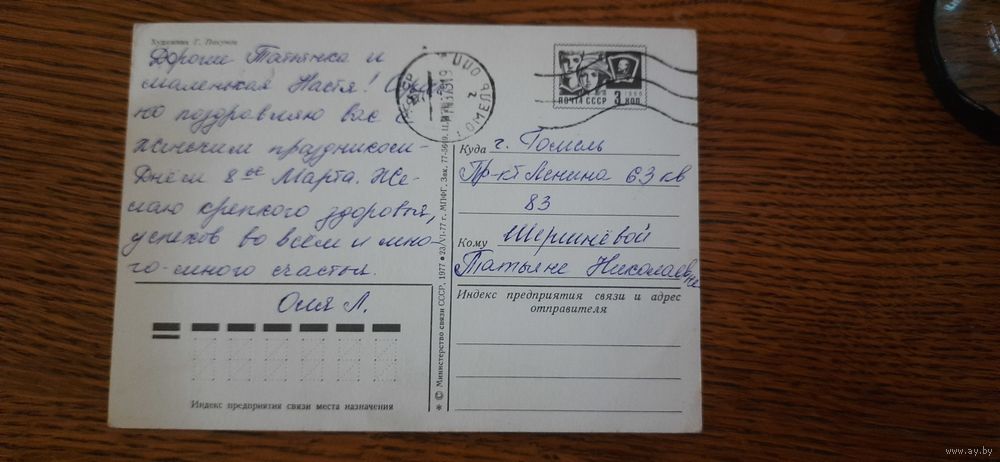 Художник Г.
Дорогие Татьянка и
маленькая Настя!
но поздравляю вас с
женским праздником -
Днём 8ое Марта. Же-
лаю крепкого здоровья,
успехов во всём и мно-
го-много счастья.
Оля Л.
Индекс предприятия связи места назначения
* © Министерство связи СССР, 1977 • 23/VI-77 г., МПФГ. Зак. 77-5609.
ГОМЕЛЬ
ПОЧТА СССР 3 КОП.
1966
Куда г. Гомель
Пр-кт Ленина 63 кв
83
Кому Шершнёвой
Татьяне Николаевне
Индекс предприятия связи и адрес
отправителя
www.ay.by